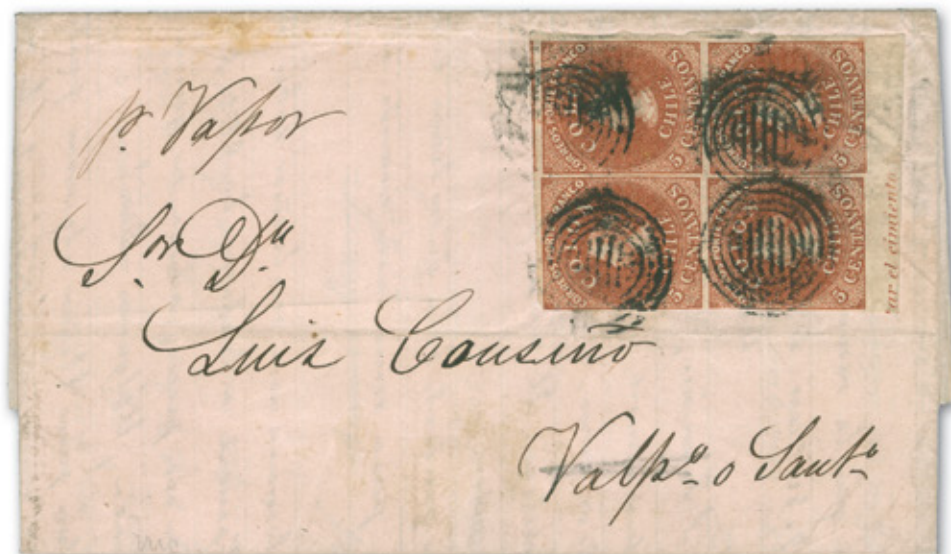 p. Vapor
Sor Dn
Luis Cousiño
Valpo o Santo
CORREOS PORTE FRANCO
COLON
CHILE
5 CENTAVOS
CORREOS PORTE FRANCO
COLON
CHILE
5 CENTAVOS
CORREOS PORTE FRANCO
COLON
CHILE
5 CENTAVOS
CORREOS PORTE FRANCO
COLON
CHILE
5 CENTAVOS
ar el cimiento